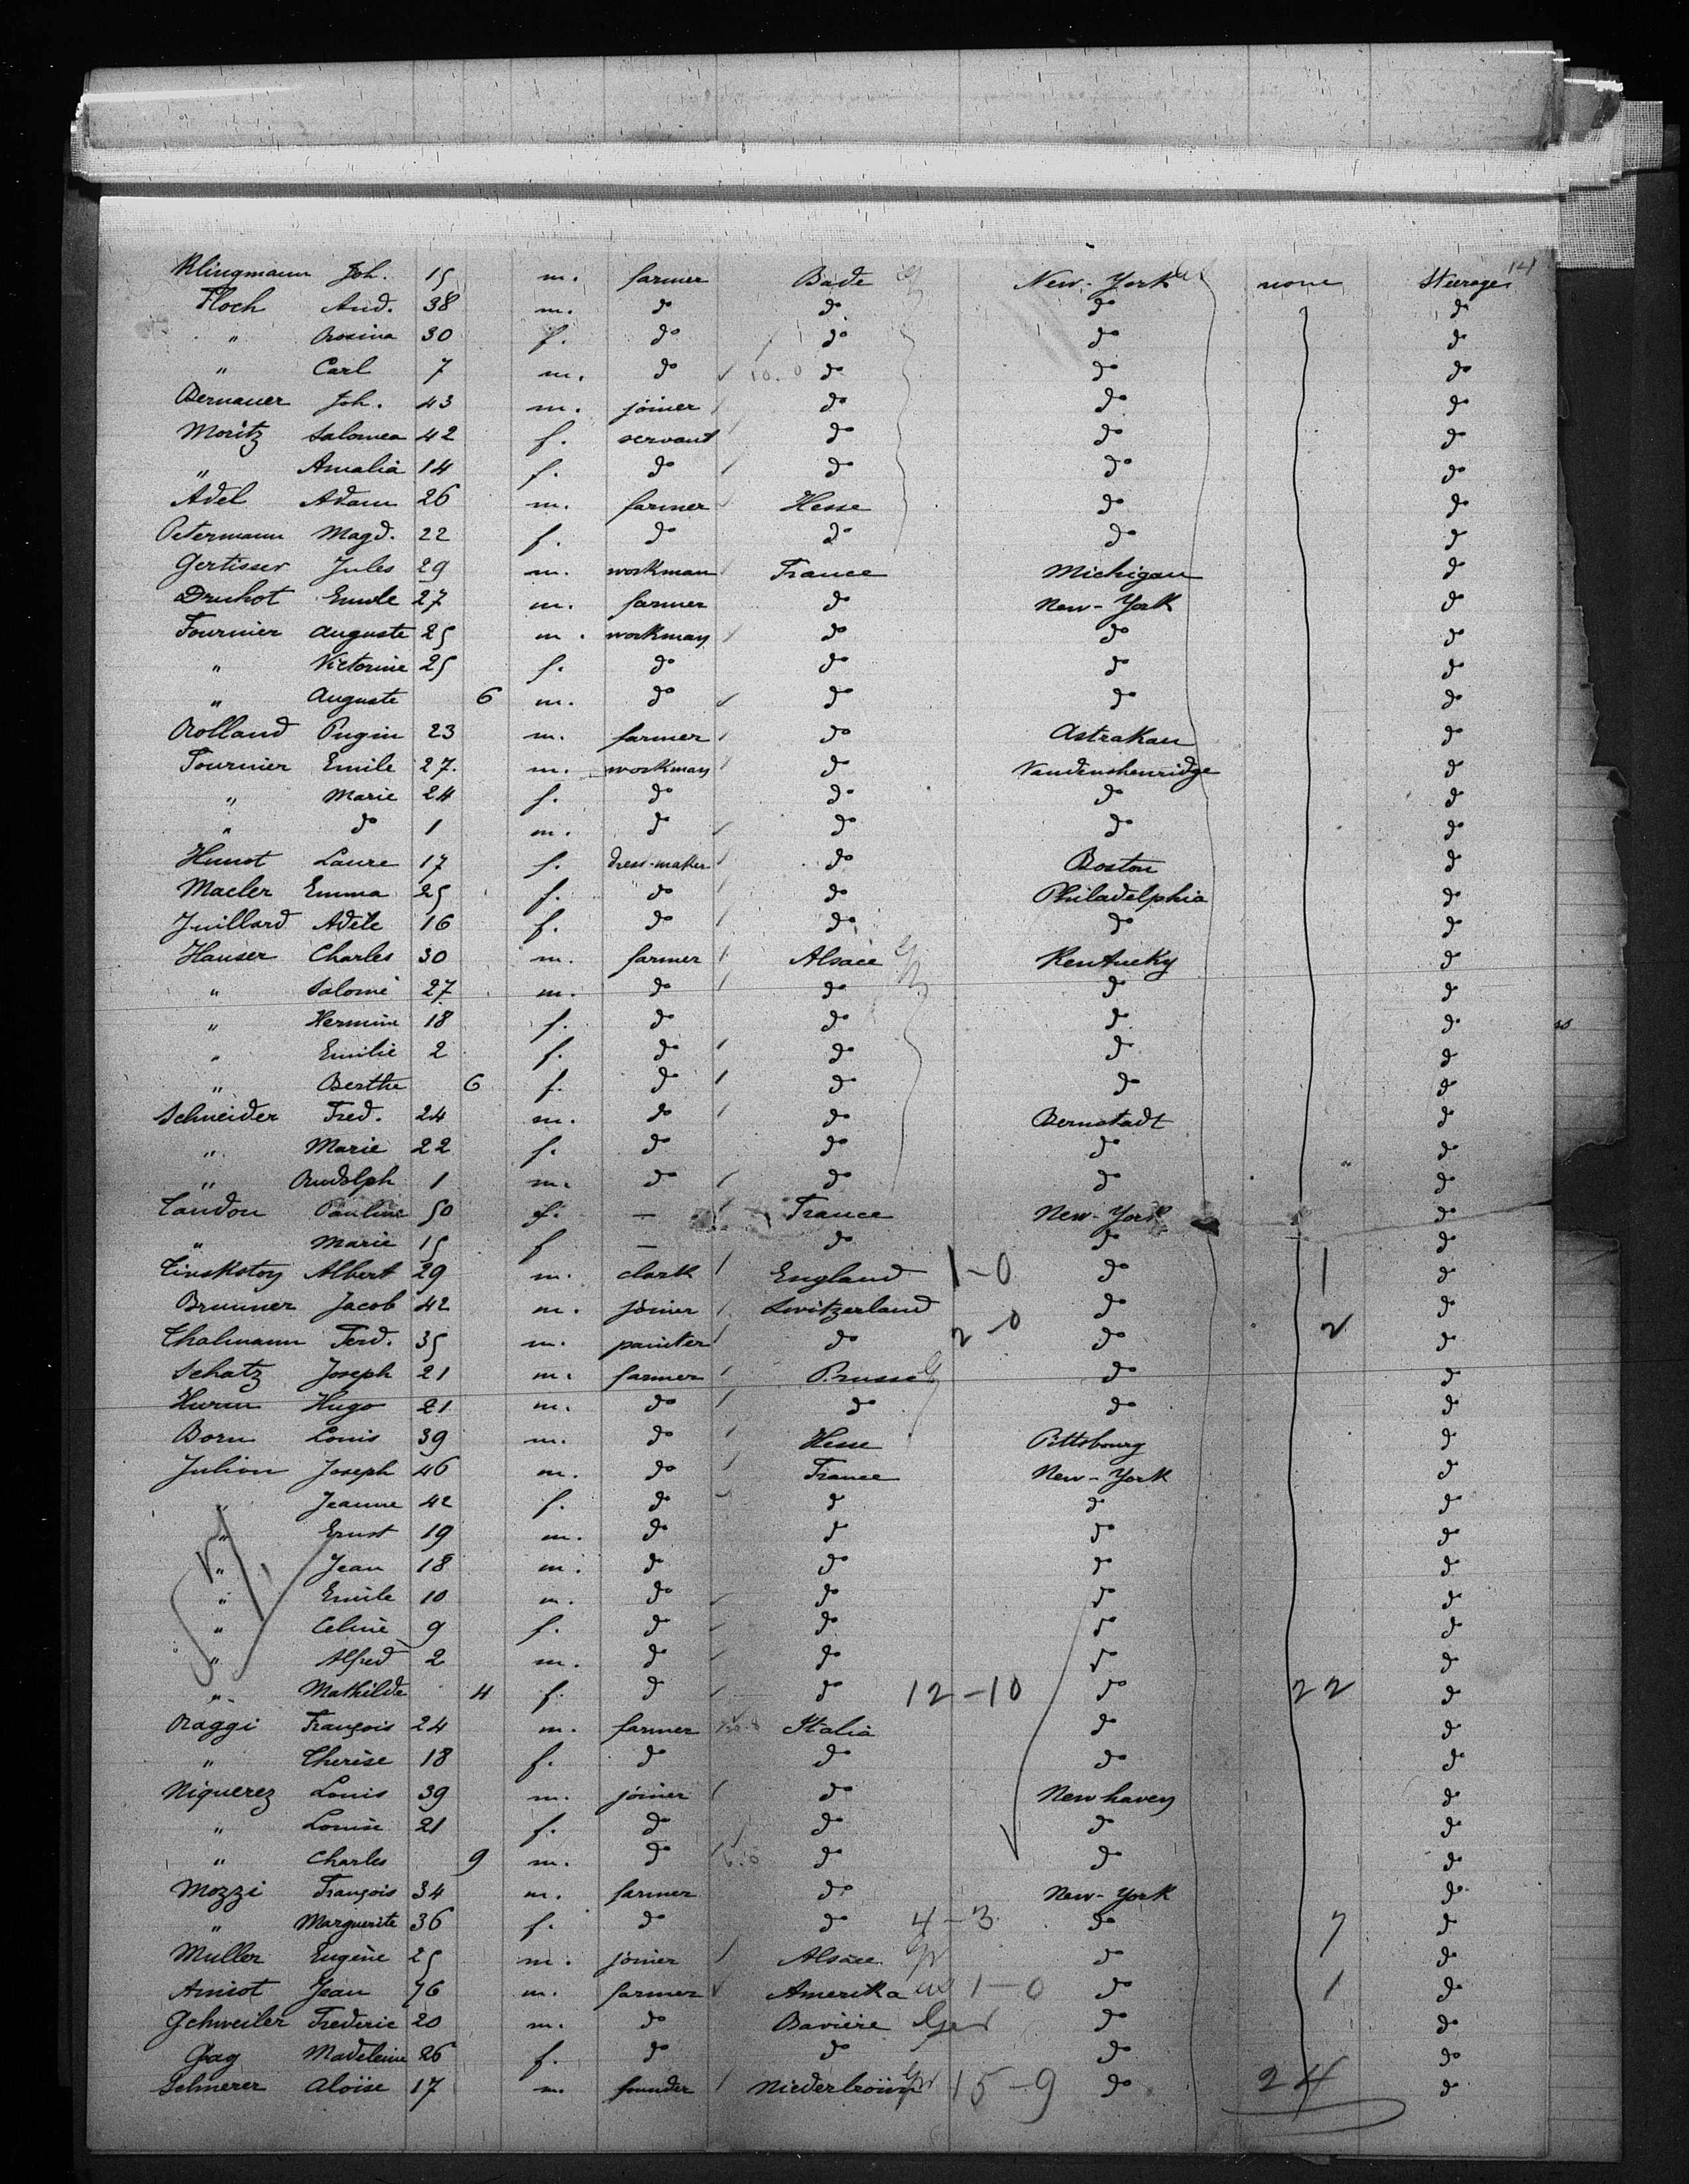 14
Klingmann Joh. 15 m. farmer Bade New-York none Steerage
Floch And. 38 m. do do do do
" Rosina 30 f. do do do do
" Carl 7 m. do do do do
Bernauer Joh. 43 m. joiner do do do
Moritz Salomea 42 f. servant do do do
" Amalia 14 f. do do do do
Adel Adam 26 m. farmer Hesse do do
Petermann Magd. 22 f. do do do do
Gertisser Jules 29 m. workman France Michigan do
Druhot Emile 27 m. farmer do New-York do
Fournier Auguste 25 m. workman do do do
" Victorine 25 f. do do do do
" Auguste 6 m. do do do do
Rolland Pugin 23 m. farmer do Astrakan do
Fournier Emile 27. m. workman do Vandenshenridge do
" Marie 24 f. do do do do
" do 1 m. do do do do
Hunot Laure 17 f. dress-maker do Boston do
Macler Emma 25 f. do do Philadelphia do
Juillard Adèle 16 f. do do do do
Hauser Charles 30 m. farmer Alsace Kentucky do
" Salomé 27 m. do do do do
" Hermine 18 f. do do do do
" Emilie 2 f. do do do do
" Berthe 6 f. do do do do
Schneider Fred. 24 m. do do Bernstadt do
" Marie 22 f. do do do do
" Rudolph 1 m. do do do do
Candon Pauline 50 f. — France New-York do
" Marie 15 f — do do do
Albert 29 m. clark England 1-0 do 1 do
Brunner Jacob 42 m. joiner Switzerland do do
Thalmann Ferd. 35 m. painter do 2-0 do 2 do
Schatz Joseph 21 m. farmer Prusse do do
Hurm Hugo 21 m. do do do do
Born Louis 39 m. do Hesse Pittsbourg do
Julion Joseph 46 m. do France New-York do
" Jeanne 42 f. do do do do
" Ernst 19 m. do do do do
" Jean 18 m. do do do do
" Emile 10 m. do do do do
" Celine 9 f. do do do do
" Alfred 2 m. do do do do
" Mathilde 4 f. do do 12-10 do 22 do
Raggi François 24 m. farmer Italia do do
" Therèse 18 f. do do do do
Niquerez Louis 39 m. joiner do Newhaven do
" Louise 21 f. do do do do
" Charles 9 m. do do do do
Mozzi François 34 m. farmer do New-York do
" Marguerite 36 f. do do 4-3 do 7 do
Muller Eugène 25 m. joiner Alsace do do
Amiot Jean 76 m. farmer Amerika 1-0 do 1 do
Gchweiler Frederic 20 m. do Bavière Ger do do
Gag Madeleine 26 f. do do do do
Schnerer Aloïse 17 m. founder 15-9 do 24 do